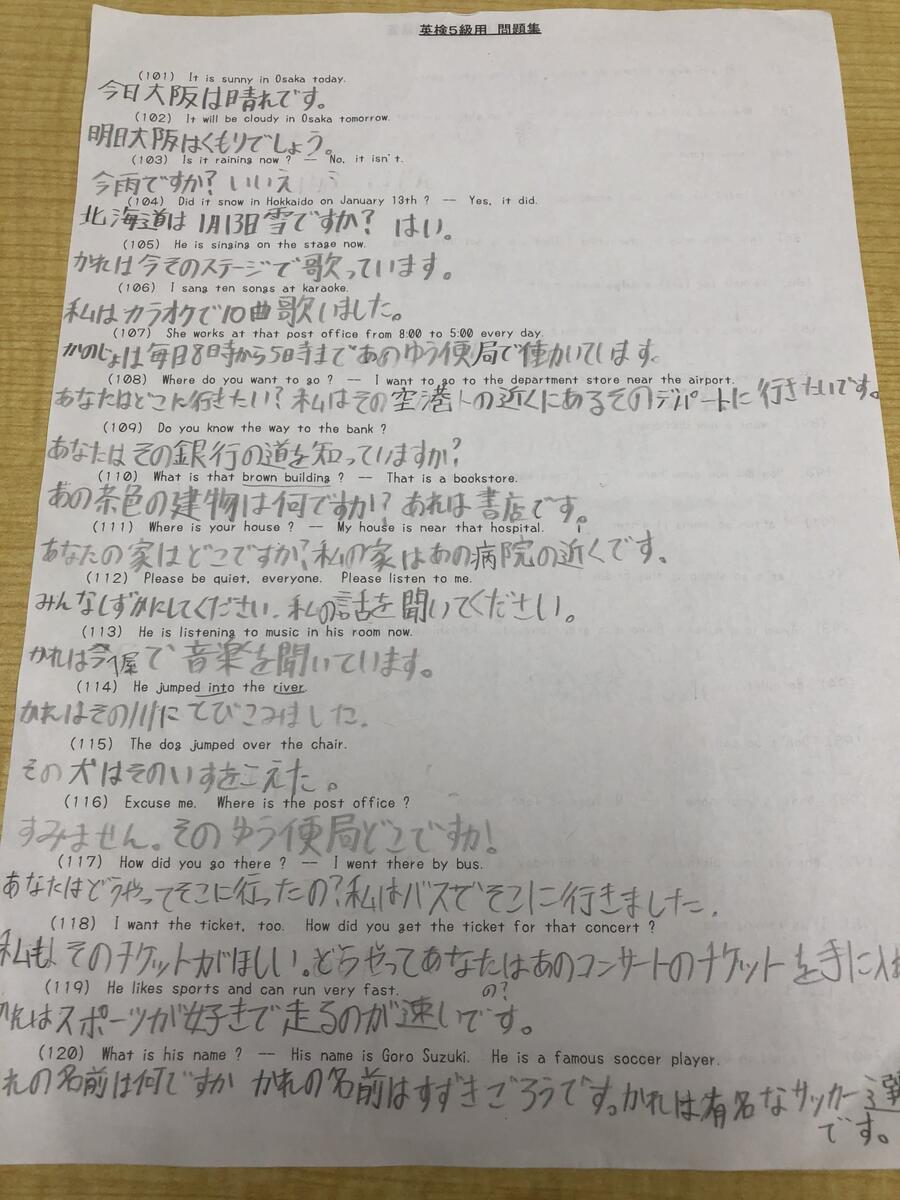 英検5級用 問題集
(101) It is sunny in Osaka today.
今日大阪は晴れです。
(102) It will be cloudy in Osaka tomorrow.
明日大阪はくもりでしょう。
(103) Is it raining now ? -- No, it isn't.
今雨ですか? いいえ
(104) Did it snow in Hokkaido on January 13th ? -- Yes, it did.
北海道は 1月13日雪ですか? はい。
(105) He is singing on the stage now.
かれは今そのステージで歌っています。
(106) I sang ten songs at karaoke.
私はカラオケで10曲歌いました。
(107) She works at that post office from 8:00 to 5:00 every day.
かのじょは毎日8時から5時まであのゆう便局で働いています。
(108) Where do you want to go ? -- I want to go to the department store near the airport.
あなたはどこに行きたい? 私はその空港の近くにあるそのデパートに行きたいです。
(109) Do you know the way to the bank ?
あなたはその銀行の道を知っていますか?
(110) What is that brown building ? -- That is a bookstore.
あの茶色の建物は何ですか? あれは書店です。
(111) Where is your house ? -- My house is near that hospital.
あなたの家はどこですか?私の家はあの病院の近くです。
(112) Please be quiet, everyone. Please listen to me.
みんなしずかにしてください。私の話を聞いてください。
(113) He is listening to music in his room now.
かれは今へ屋で音楽を聞いています。
(114) He jumped into the river.
かれはその川にとびこみました。
(115) The dog jumped over the chair.
その犬はそのいすをこえた。
(116) Excuse me. Where is the post office ?
すみません。そのゆう便局どこですか!
(117) How did you go there ? -- I went there by bus.
あなたはどうやってそこに行ったの?私はバスでそこに行きました。
(118) I want the ticket, too. How did you get the ticket for that concert ?
私も、そのチケットがほしい。どうやってあなたはあのコンサートのチケットを手に入
の?
(119) He likes sports and can run very fast.
かれはスポーツが好きで走るのが速いです。
(120) What is his name ? -- His name is Goro Suzuki. He is a famous soccer player.
れの名前は何ですか かれの名前はすずきごろうです。かれは有名なサッカー選
です。